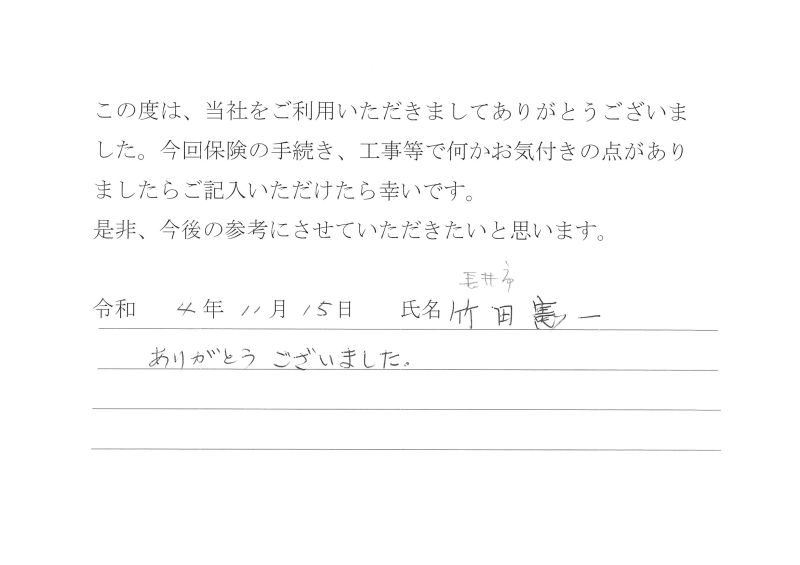 この度は、当社をご利用いただきましてありがとうございま
した。今回保険の手続き、工事等で何かお気付きの点があり
ましたらご記入いただけたら幸いです。
是非、今後の参考にさせていただきたいと思います。
長井市
令和 4年 11月 15日 氏名 竹田憲一
ありがとうございました。